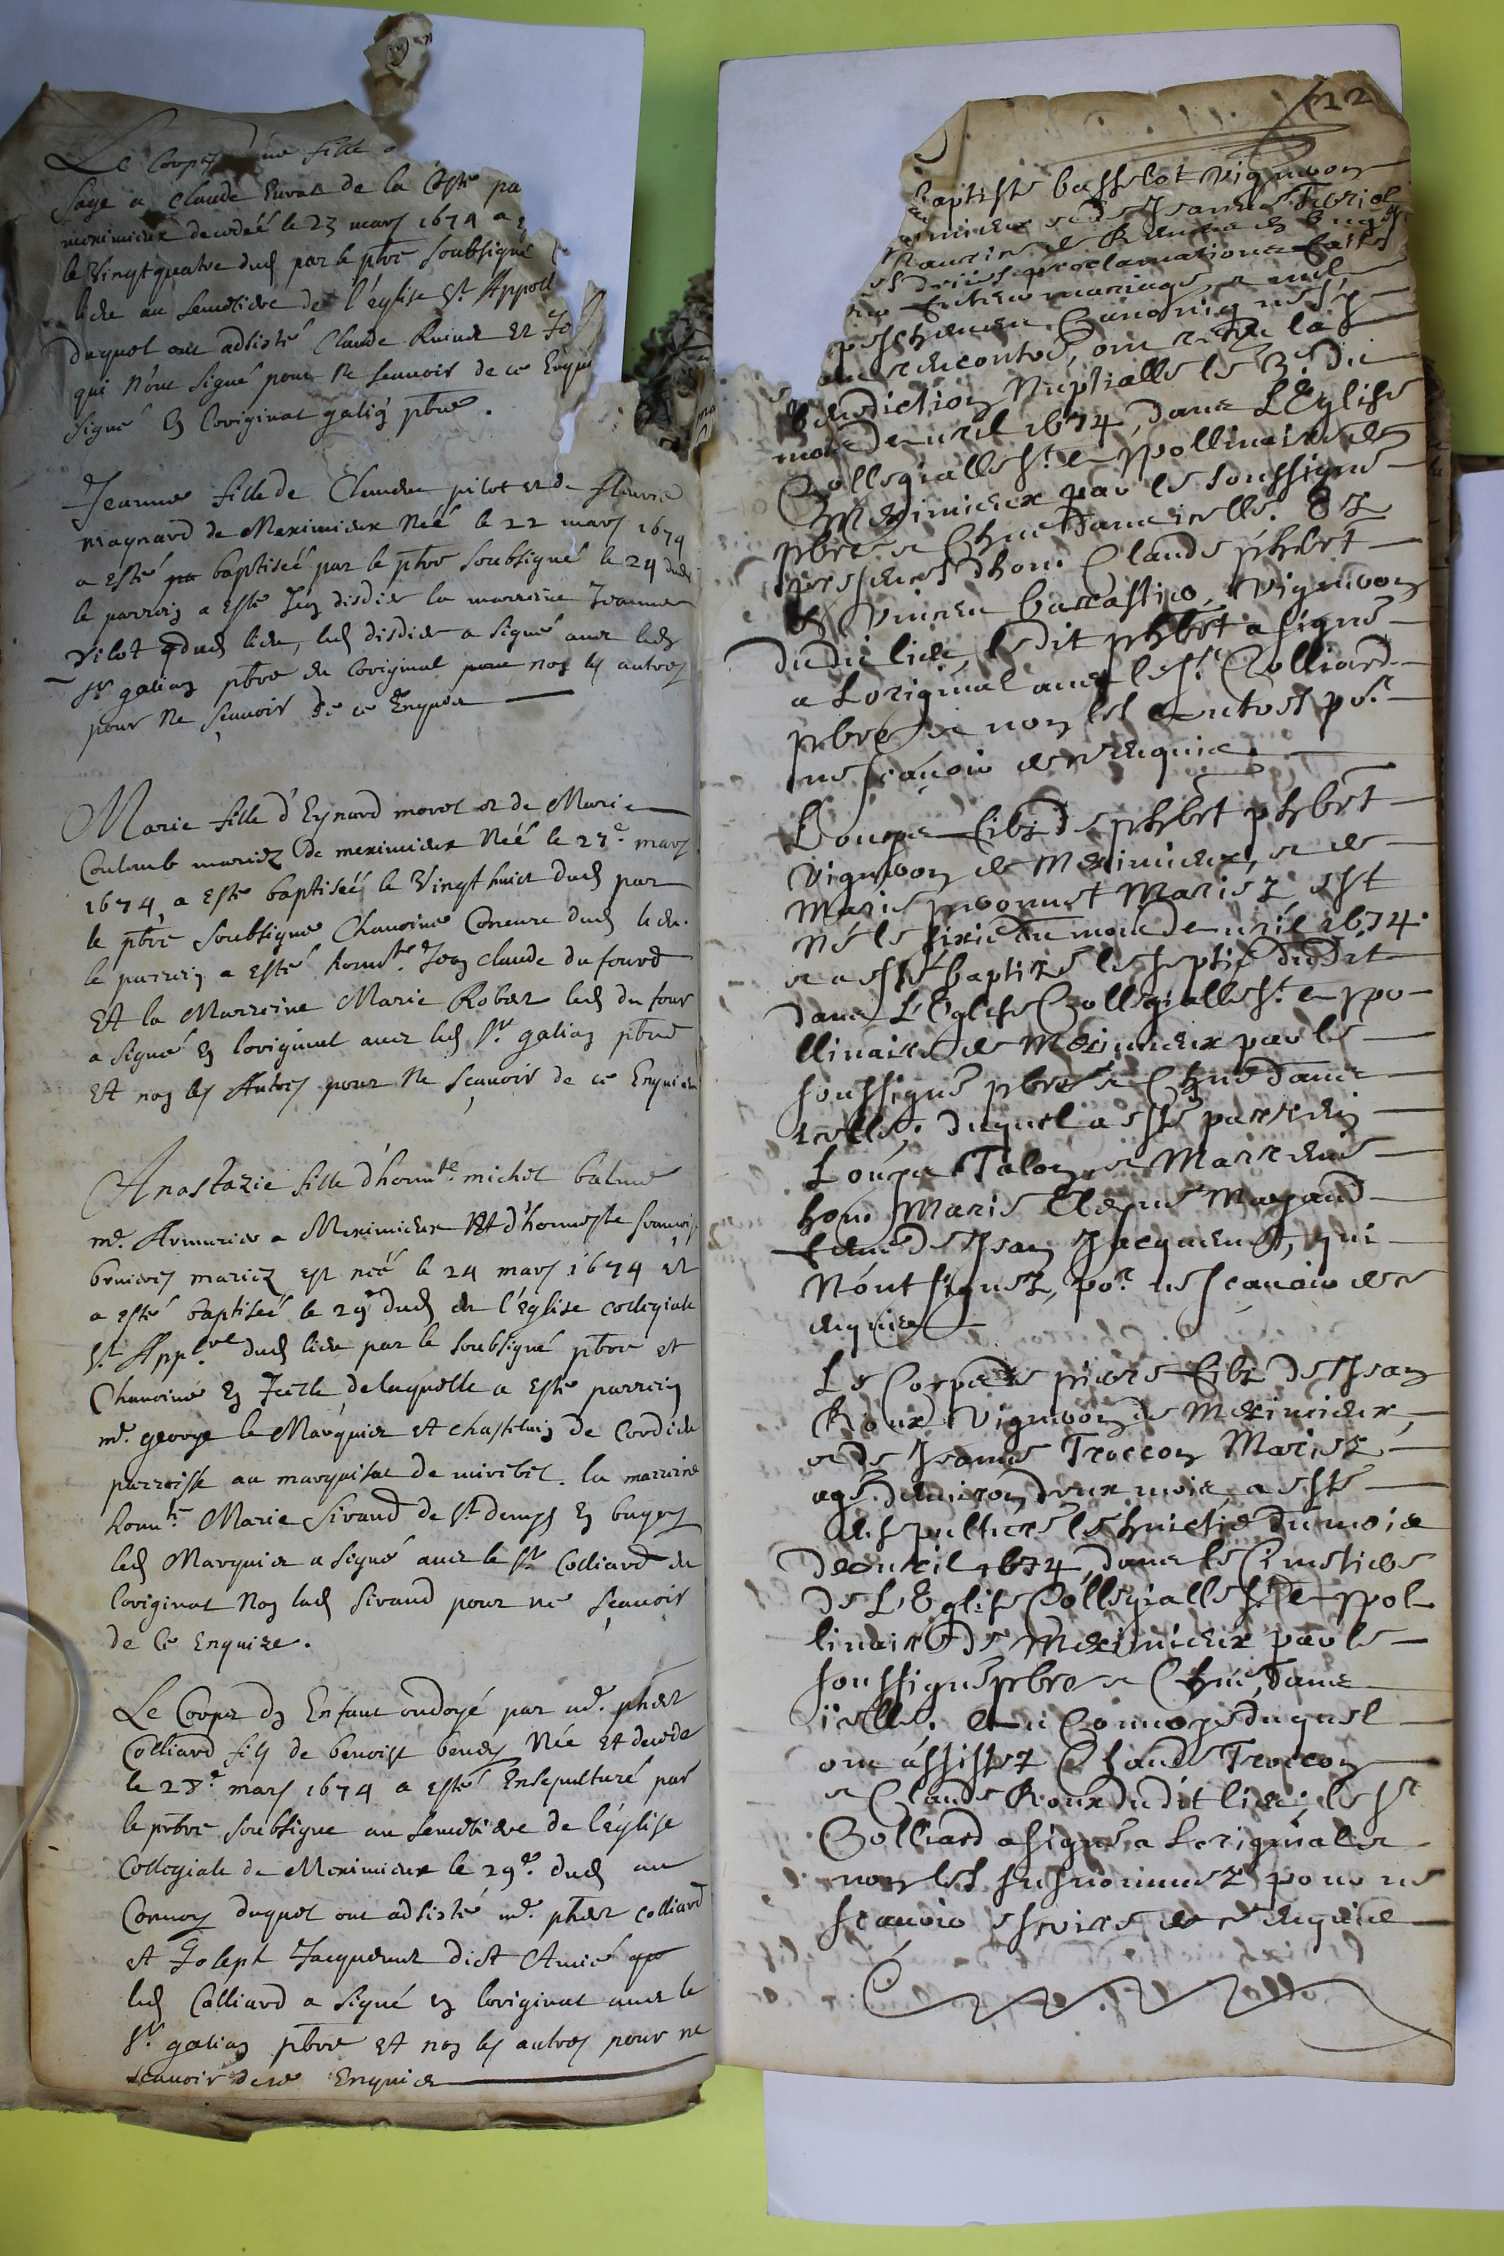 Le Corps d'une fille a
Sage a Claude de la Coste pa
meximieux decedeé le 23 mars 1674 a
le Vingtquatre dud par le pbre Soubsigné
lieu au Semetiere de l'église St Appoll
duquel ont adsisté Claude et Jo
qui n'ont signé pour ne scauoir de ce Enquis
signé En loriginal galien pbre.
Jeanne fille de Claude pilot et de fleurie
magnard de Meximieux Neé le 22 mars 1674
a esté baptiseé par le pbre Soubsigné le 24 dud
le parrein a esté Jean disdier la marreine Jeanne
pilot dud lieu, led disdier a signé auec led
Sr galien pbre en loriginal non les autres
pour ne scauoir de ce Enquis
Marie fille d'Eynard morel et de Marie
Coulomb mariez de meximieux Neé le 27e mars
1674, a esté baptiseé le Vingt huict dud par
le pbre Soubsigne Chanoine Coneure dud lieu.
le parrein a esté honnste Jean claude du fourd
Et la Marreine Marie Robert led du four
a signé en loriginal auec led Sr galien pbre
Et non les Autres pour ne scauoir de ce Enquis
Anastazie fille d'honnte michel balme
me Armurier a Meximieux Et d'honneste francoise
bruieres mariez est neé le 24 mars 1674 et
a esté baptiseé le 29e dud en l'eglise collegiale
St Appre dud lieu par le soubsigné pbre et
Chanoine En Icelle, de laquelle a esté parrein
me. george le Marquier et chastelain de Cordieu
parroisse au marquisat de miribel. la marreine
honnte Marie Sirand de St denys En bugey
led Marquier a signé auec le Sr Colliard en
loriginal Non lad Sirand pour ne scauoir
de Ce Enquise.
Le Corps d'un Enfant ondoyé par me. phert
Colliard fils de benoist Née et decede
le 28e mars 1674 a esté Ensepulturé par
le prbre soubsigne au semetiere de l'église
Collegiale de Meximieux le 29e. dud au
Conuoy duquel ont adsisté me. phert Colliard
et Joseph Jacquemet dict Amié
led Colliard a signé en loriginal auec le
Sr galien pbre et non les autres pour ne
scauoir de ce Enquis
22
Baptiste basselot vigneron
de Jeanne
proclamations faites
mariage, et nul
peschement Canonique
rencontré, ont receu la
benediction Nuptialle le 3e du
mois de auril 1674, dans L'Eglise
Collegialle St Appollinaire de
Meximieux par le soussigné
pbre et Chne dans icelle. Ez
presences d'hon. Claude phbert
et vigneron
dudit lieu, ledit phbert a signé
a Loriginal auec le Sr Colliard
pbre et non les autres por
ne scauoir de ce enquis.
Loupe filz de phbert phbert
vigneron de Meximieux, et de
Marie Mariez est
Né le sixie du mois de auril 1674.
et a esté baptizé le septie dudit
dans L'Eglise Collegialle St Appo-
llinaire de Meximieux par le
soussigné pbre et Chne dans
icelle. duquel a esté parrein
Loupe Talon et Marreine
hon. Marie Magand
feme de Jean Jacquemet, qui
N'ont signez, por ne scauoir de ce
enquis
Le Corps de piere filz de Jean
Roux vigneron de Meximieux,
et de Jeanne Troccon Mariez
agé denuiron deux mois a esté
ensepulturé le huictie du mois
de auril 1674, dans le Cimetiere
de L'Eglise Collegialle St Appol
linaire de Meximieux par le
soussigné pbre et Chne, dans
icelle. Au Conuoye duquel
ont assistez Claude Troccon
et Claude Roux dudit lieu; le Sr
Colliard a signé a Loriginal et
non les susnommez pour ne
scauoir escrire de ce enquis